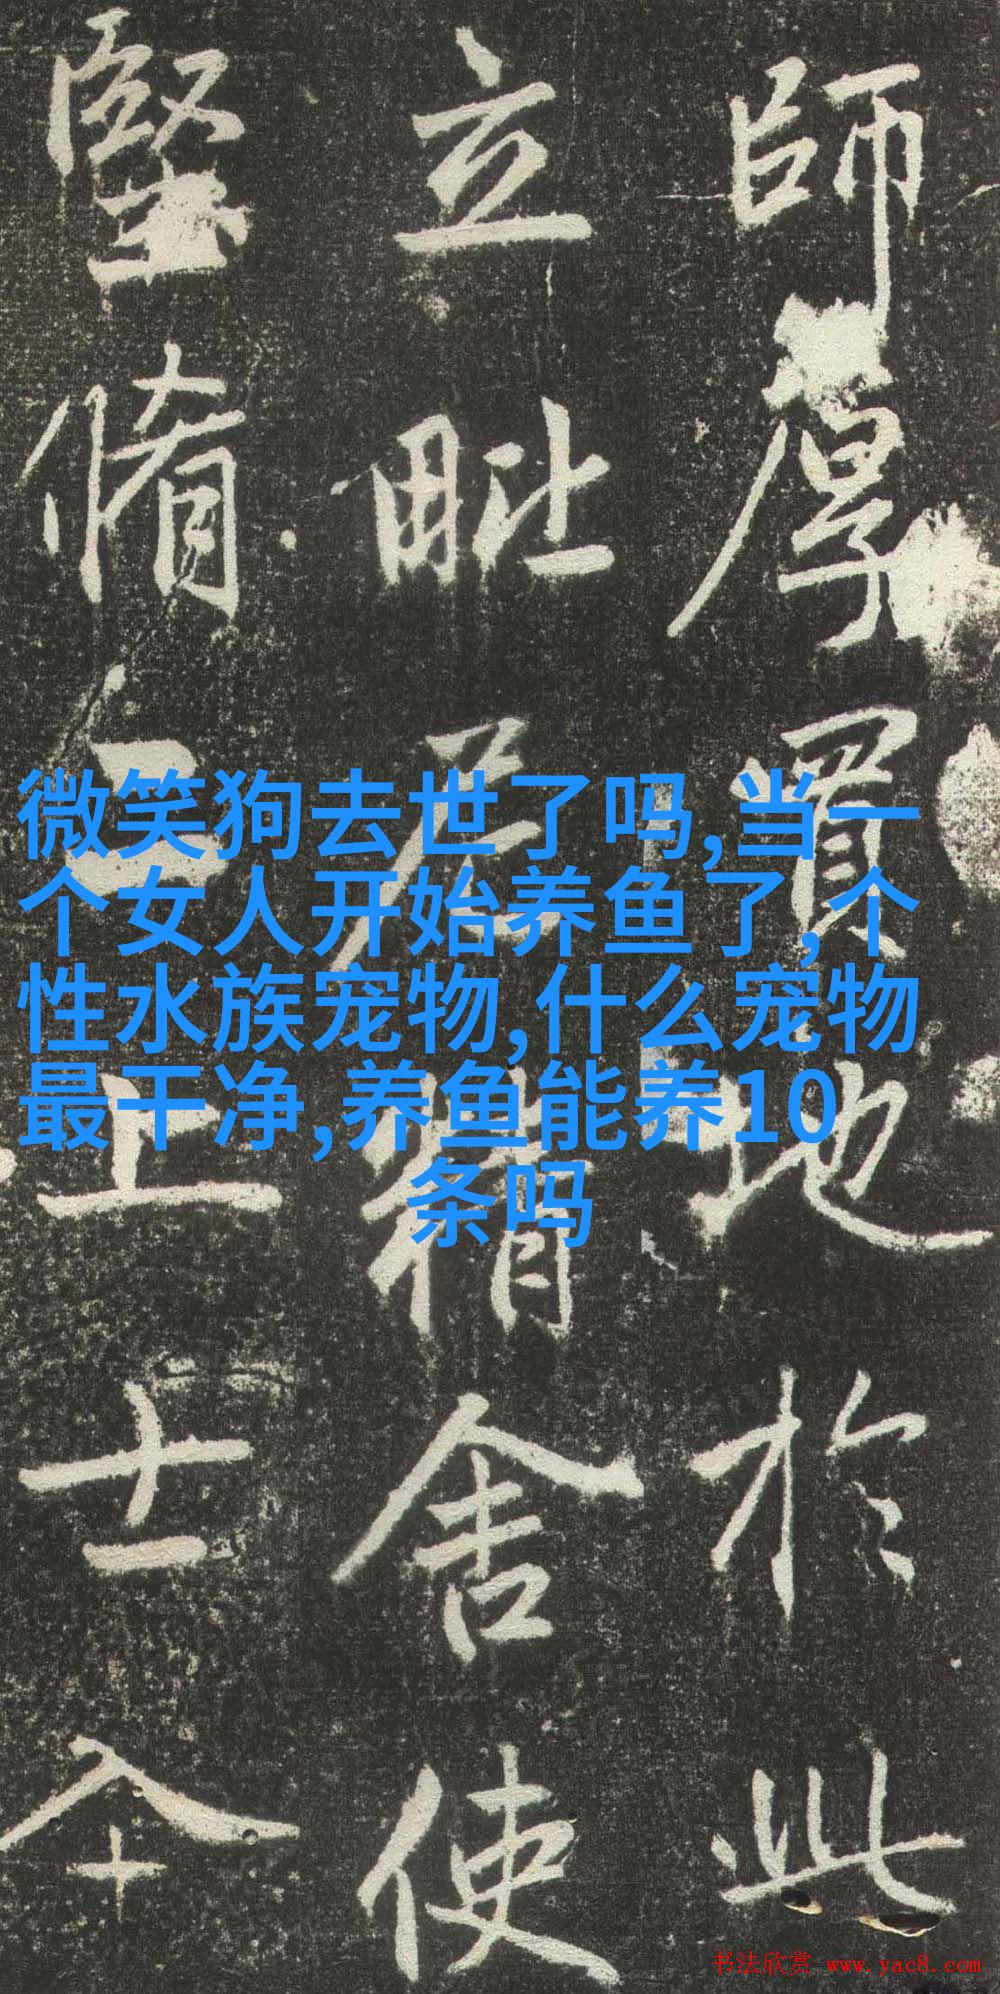 師厚買地於此
立毗尼精舍使
堅脩上士
微笑狗去世了吗,当一
个女人开始养鱼了,个
性水族宠物,什么宠物
最干净,养鱼能养10
条吗
书法欣赏 www.yac8.com